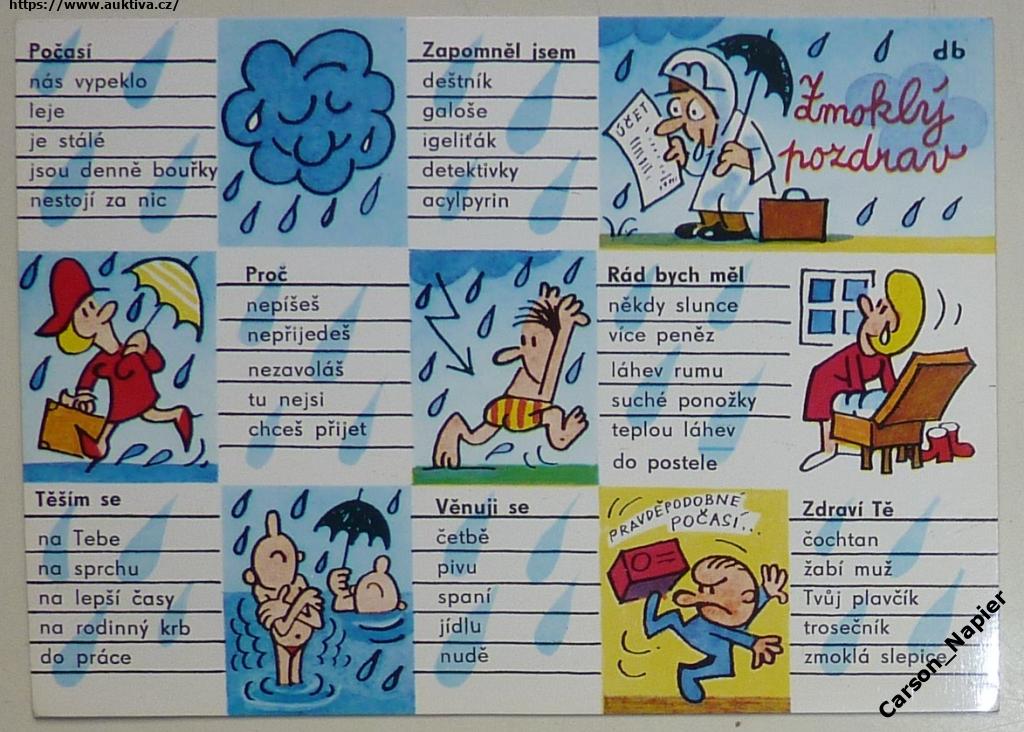 https://www.auktiva.cz/
Počasí
nás vypeklo
leje
je stálé
jsou denně bouřky
nestojí za nic
Zapomněl jsem
deštník
galoše
igeliťák
detektivky
acylpyrin
ÚČET
db
Zmoklý
pozdrav
Proč
nepíšeš
nepřijedeš
nezavoláš
tu nejsi
chceš přijet
Rád bych měl
někdy slunce
více peněz
láhev rumu
suché ponožky
teplou láhev
do postele
Těším se
na Tebe
na sprchu
na lepší časy
na rodinný krb
do práce
Věnuji se
četbě
pivu
spaní
jídlu
nudě
PRAVDĚPODOBNÉ
POČASÍ..
Zdraví Tě
čochtan
žabí muž
Tvůj plavčík
trosečník
zmoklá slepice
Carson_Napier